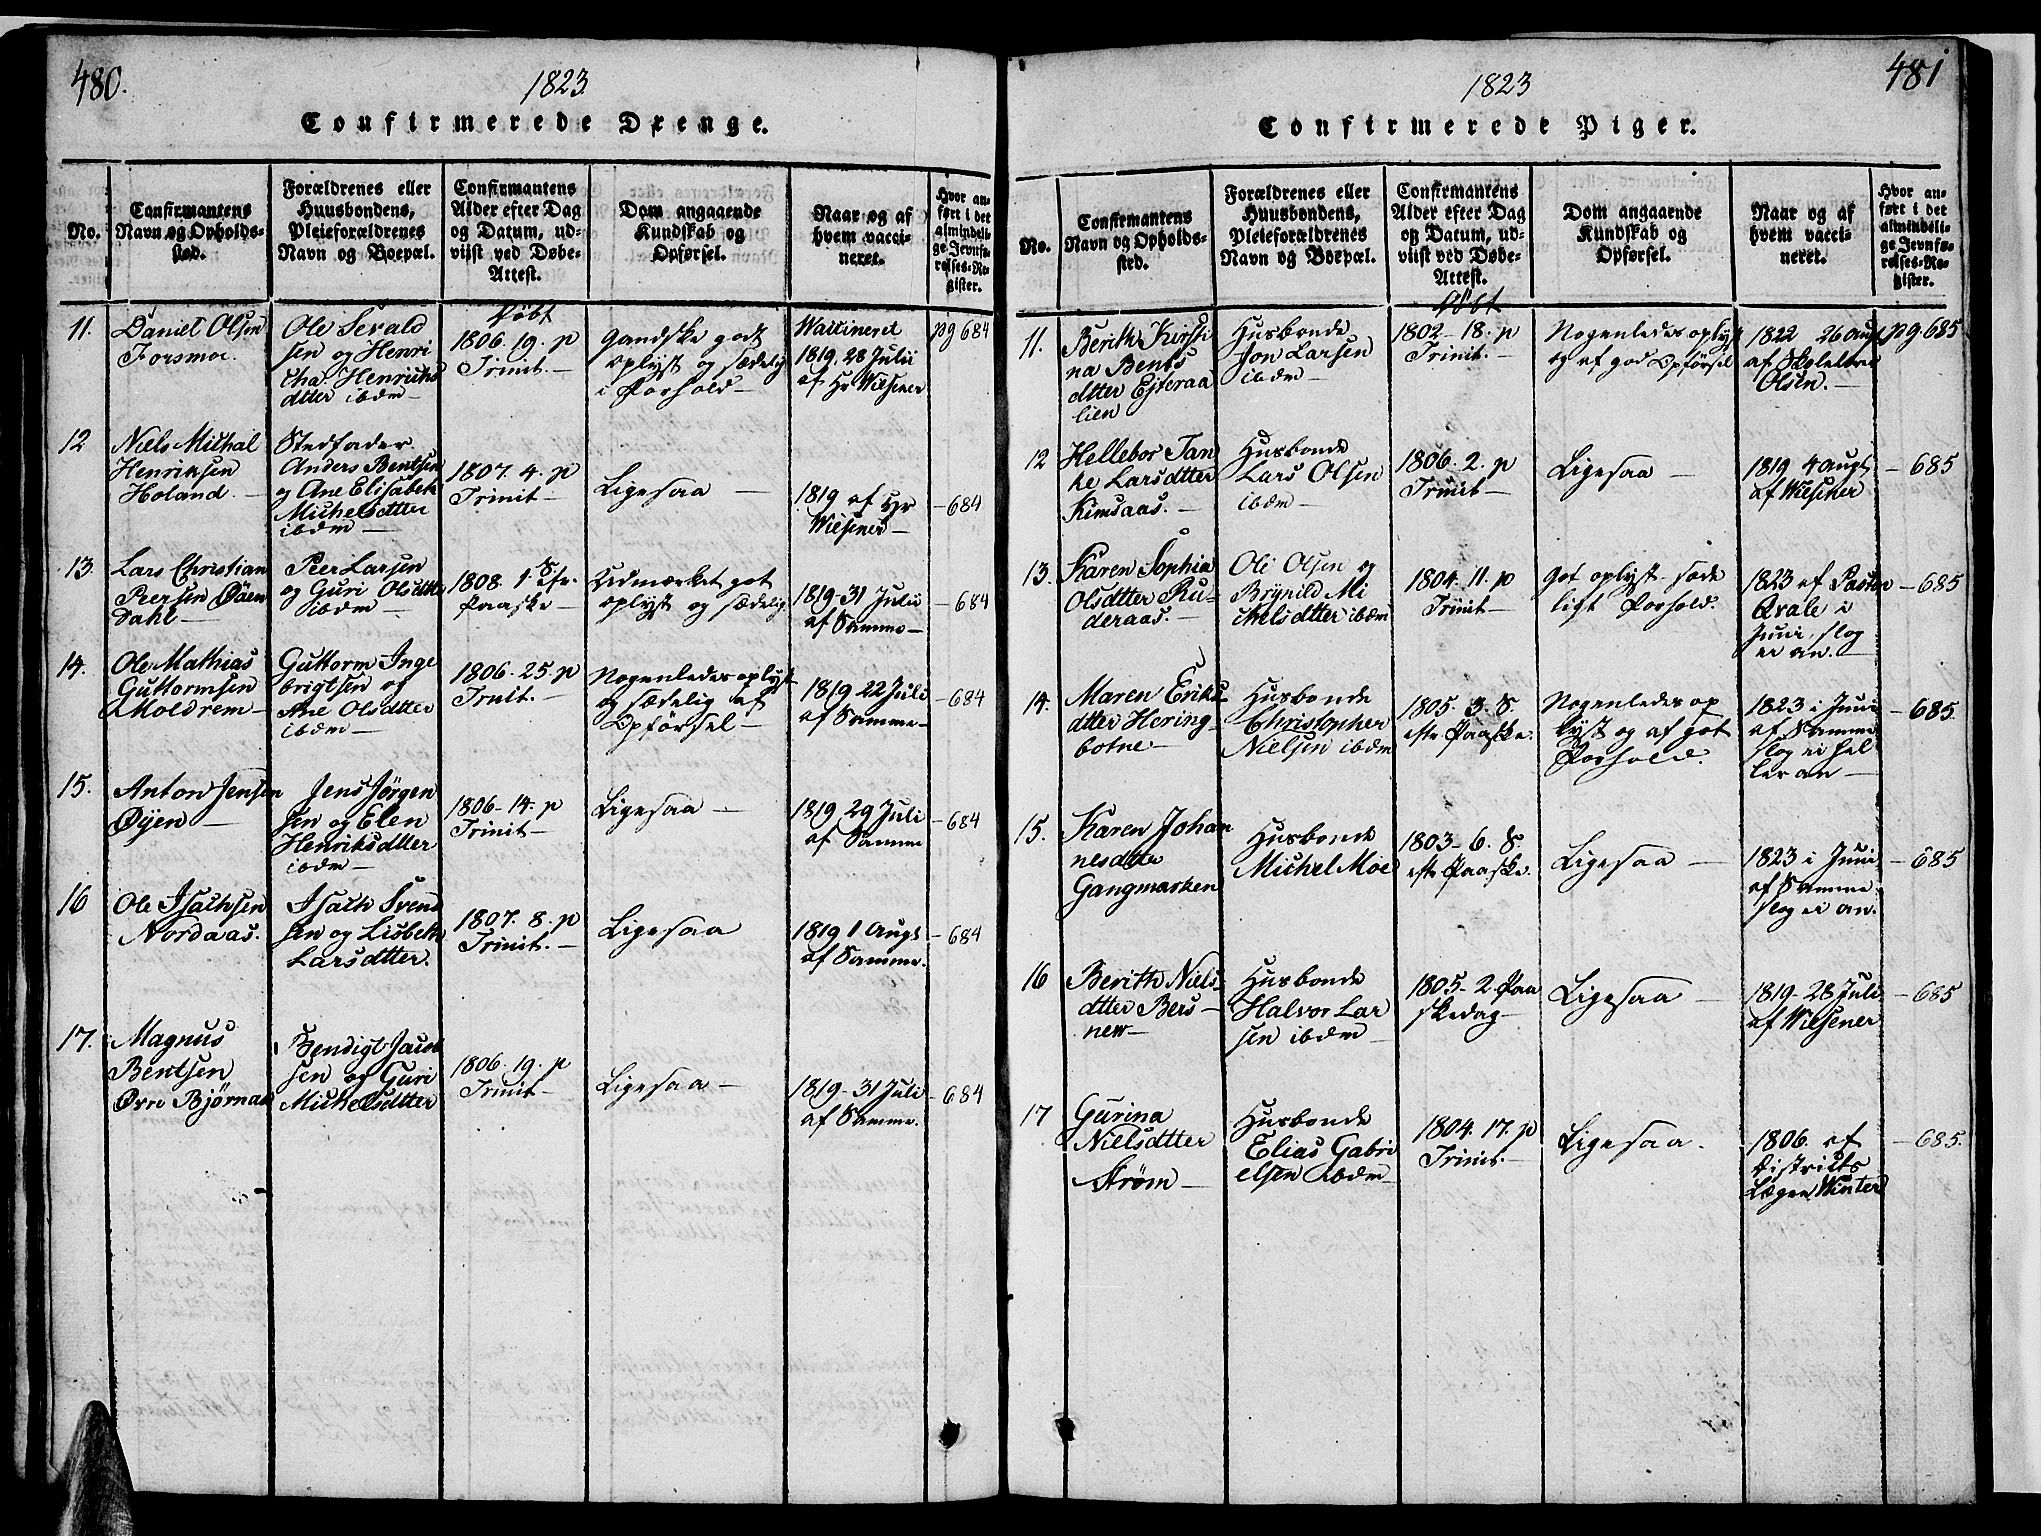 480.
1823
Confirmerede Drenge.
No.
Confirmantens
Navn og Opholds-
sted.
Forældrenes eller
Huusbondens,
Pleieforældrenes
Navn og Boepæl.
Confirmantens
Alder efter Dag
og Datum, ud-
viist ved Døbe-
Attest.
Dom angaaende
Kundskab og
Opførsel.
Naar og af
hvem vacci-
neret.
Hvor an-
ført i det
almindeli-
ge Jevnfø-
relses-Re-
gister.
11.
Daniel Olsen
Forsmoe.
Ole Sevald
sen og Henri
cha Henriks
dtter ibdm
Døbt
1806. 19. p
Trinit.
Gandske godt
oplyst og sædelig
i Forhold
Vaccineret
1819. 28 Julii
af Hr Wiesener
pg 684
12
Niels Michal
Henriksen
Holand
Stedfader
Anders Bentsen
og Ane Elisabeth
Michelsdtter
ibdm
1807. 4. p
Trinit
Ligesaa
1819 af Hr
Wiesener
684
13.
Lars Christian
Peersen Øien
Dahl
Peer Larsen
og Guri Olsdtter
ibdm
1808. 1. S. efr.
Paaske
Udmærket got
oplyst og sædelig
1819-31 Julii
af Samme
684
14.
Ole Mathias
Guttormsen
Moldrem
Guttorm Inge
brigtsen og
Ane Olsdtter
ibdm
1806. 25. p
Trinit.
Nogenledes oplyst
og sædelig af
Opførsel
1819 22 Juli
af Samme
684
15.
Anton Jensen
Øyen
Jens Jørgen
sen og Elen
Henriksdtter
ibdm
1806-14. p
Trinit
Ligesaa
1819 29 Juli
af Samme
684
16
Ole Isachsen
Nordaas.
Isach Svend
sen og Lisbeth
Larsdtter.
1807. 8. p
Trinit.
Ligesaa
1819 1 Augs
af Samme.
684
17.
Magnus
Bentsen
Øvre Bjørnaas
Bendigt Jacob
sen og Guri
Michelsdtter
1806. 19. p
Trinit
Ligesaa
1819-31 Juli
af Samme.
684
481
1823
Confirmerede Piger.
No.
Confirmantens
Navn og Opholds-
sted.
Forældrenes eller
Huusbondens,
Pleieforældrenes
Navn og Boepæl.
Confirmantens
Alder efter Dag
og Datum, ud-
viist ved Døbe-
Attest.
Dom angaaende
Kundskab og
Opførsel.
Naar og af
hvem vacci-
neret.
Hvor an-
ført i det
almindeli-
ge Jevnfø-
relses-Re-
gister.
11.
Berith Kirsti
na Bents
dtter Ejteraa
lien
Husbonde
Jon Larsen
ibdm
Døbt
1802-18. p
Trinit.
Nogenledes oplyst
og af god Opførsel
1822 26 Aug
af Skolelærer
Olsen.
pg. 685
12
Hellebor Jan
ke Larsdtter
Remsaas.
Husbonde
Lars Olsen
ibdm
1806. 2. p
Trinit
Ligesaa
1819 4 Augt
af Wiesener
685
13.
Karen Sophia
Olsdtter Ru-
deraas.
Ole Olsen og
Brynild Mi
chelsdtter ibdm
1804. 11. p
Trinit
Got oplyst - sæde
ligt Forhold.
1823 af Pastor
Qvale i
Juni, slog
ei an.
685
14.
Maren Eriks
dtter Hering
botne
Husbonde
Christopher
Nielsen ibdm
1805. 3. S.
efte Paaske.
Nogenledes op
lyst og af got
Forhold.
1823 i Juni
af Samme
slog ei hel
ler an
685.
15.
Karen Johan
nesdtter
Gangmarken
Husbonde
Michel Moe
1803- 6. S.
efte Paaske.
Ligesaa
1823 i Juni
af Samme
slog ei an.
685
16
Berith Niels
dtter Bers
new
Husbonde
Halvor Lar
sen ibdm
1805- 2. Paa
skedag
Ligesaa
1819-28 Juli
af Wiesener
685
17
Gurina
Nielsdtter
Strøm
Husbonde
Elias Gabri
elsen ibdm
1804. 17. p
Trinit.
Ligesaa.
1806. af
Districts
Lægen Winter
685.